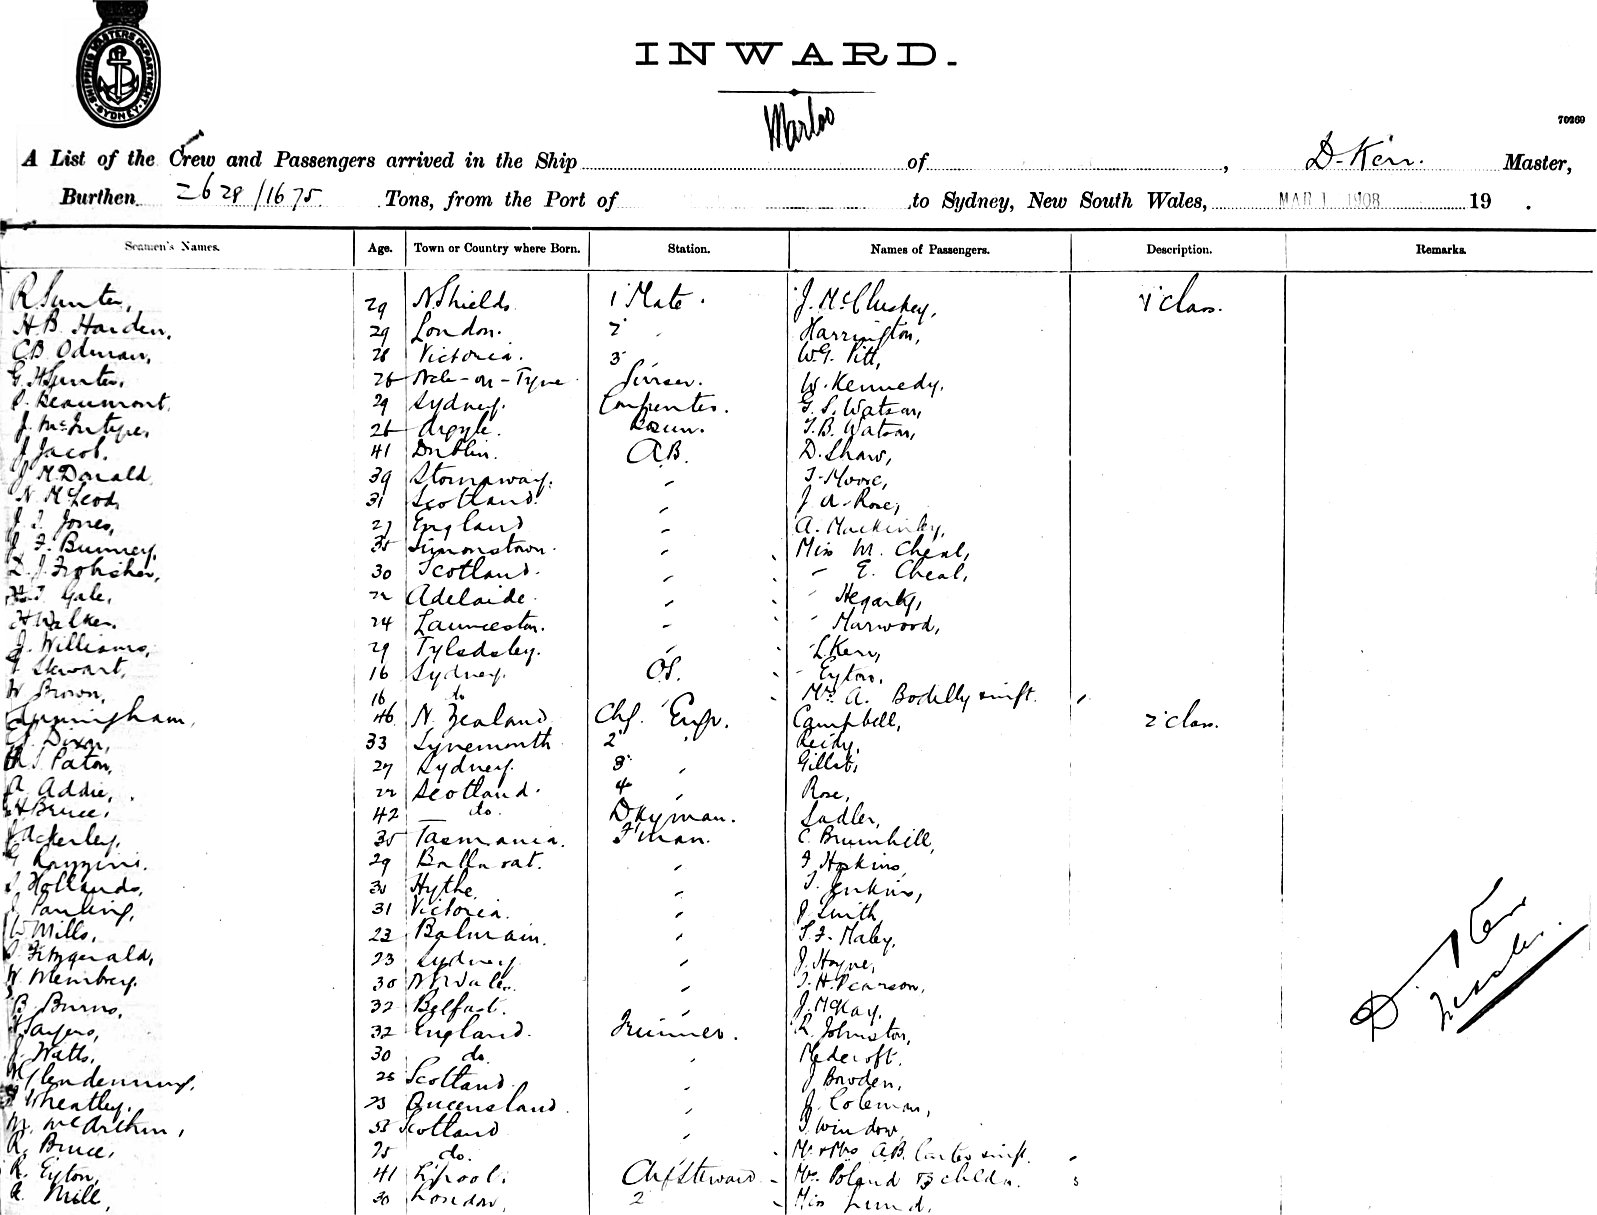 SHIPPING MASTERS DEPARTMENT SYDNEY
INWARD.
Marloo
70269
A List of the Crew and Passengers arrived in the Ship of , D. Kerr. Master,
Burthen 2628/1675 Tons, from the Port of ,to Sydney, New South Wales, MAR 1 1908 19 .
Seamen's Names. Age. Town or Country where Born. Station. Names of Passengers. Description. Remarks.
R Sunter, 29 N Shields. 1 Mate. J. McCluskey, 1' Class.
H.B. Harden, 29 London. 2 " Harrington,
C.B. Odman, 28 Victoria. 3 " W.G. Pitt,
G. H Sunter, 26 Ncle-on-Tyne W. Kennedy,
Beaumont, 29 Sydney. Carpenter. G. S. Watson,
J. McIntyre, 26 Argyle. T.B. Watson,
J Jacob. 41 Dublin. A.B. D. Shaw,
J McDonald, 39 Stornaway. " T. Moore,
N. McLeod, 31 Scotland. " J A. Rose,
J. T. Jones, 27 England " A. Mackinlay,
J. F. Bunney, 35 Simonstown. " Miss M. Cheal,
D. J. Frobisher, 30 Scotland. " " E. Cheal,
Gale, 22 Adelaide. " " Hegarty,
H Walker. 24 Launceston. " " Marwood,
J. Williams, 29 Tyldesley. " " L. Kerr,
Stewart, 16 Sydney. O.S. " Eyton,
W Brown, 16 do " Mrs A. Bodilly & inft.
Cunningham, 46 N. Zealand Chf. Engr. Campbell, 2' Class.
Dixon, 33 Tynemouth 2 " Reidy,
Paton, 27 Sydney. 3 "
R Addie, 22 Scotland. 4 " Rose,
H Bruce, 42 do. Dkyman. Sadler,
Ackerley, 35 Tasmania. F'man. C. Brumhill,
29 Ballarat. " Hopkins,
Hollands, 30 Hythe. " T. Jenkins,
Pauling, 31 Victoria. " J Smith,
W Mills, 23 Balmain. " T. F. Maley,
Fitzgerald, 23 Sydney " J. Hayne,
W. Membrey. 30 N S Wales. " T. H. Pearson,
B Burns, 32 Belfast. " J. McKay.
Sayers, 32 England. Trimmer. R. Johnston,
J. Watts, 30 do. " Medcroft.
Glendenning, 25 Scotland. " J Bowden,
Wheatley, 23 Queensland. " J. Coleman,
M. McArthur, 53 Scotland " Window,
R. Bruce, 25 do. " Mr & Mrs A.B. Carter & inft.
R. Eyton, 41 L'pool. Chf Steward Mrs Poland & 3 childn.
A. Mill, 30 London, 2 Miss Lund,
D. Kerr
Master.